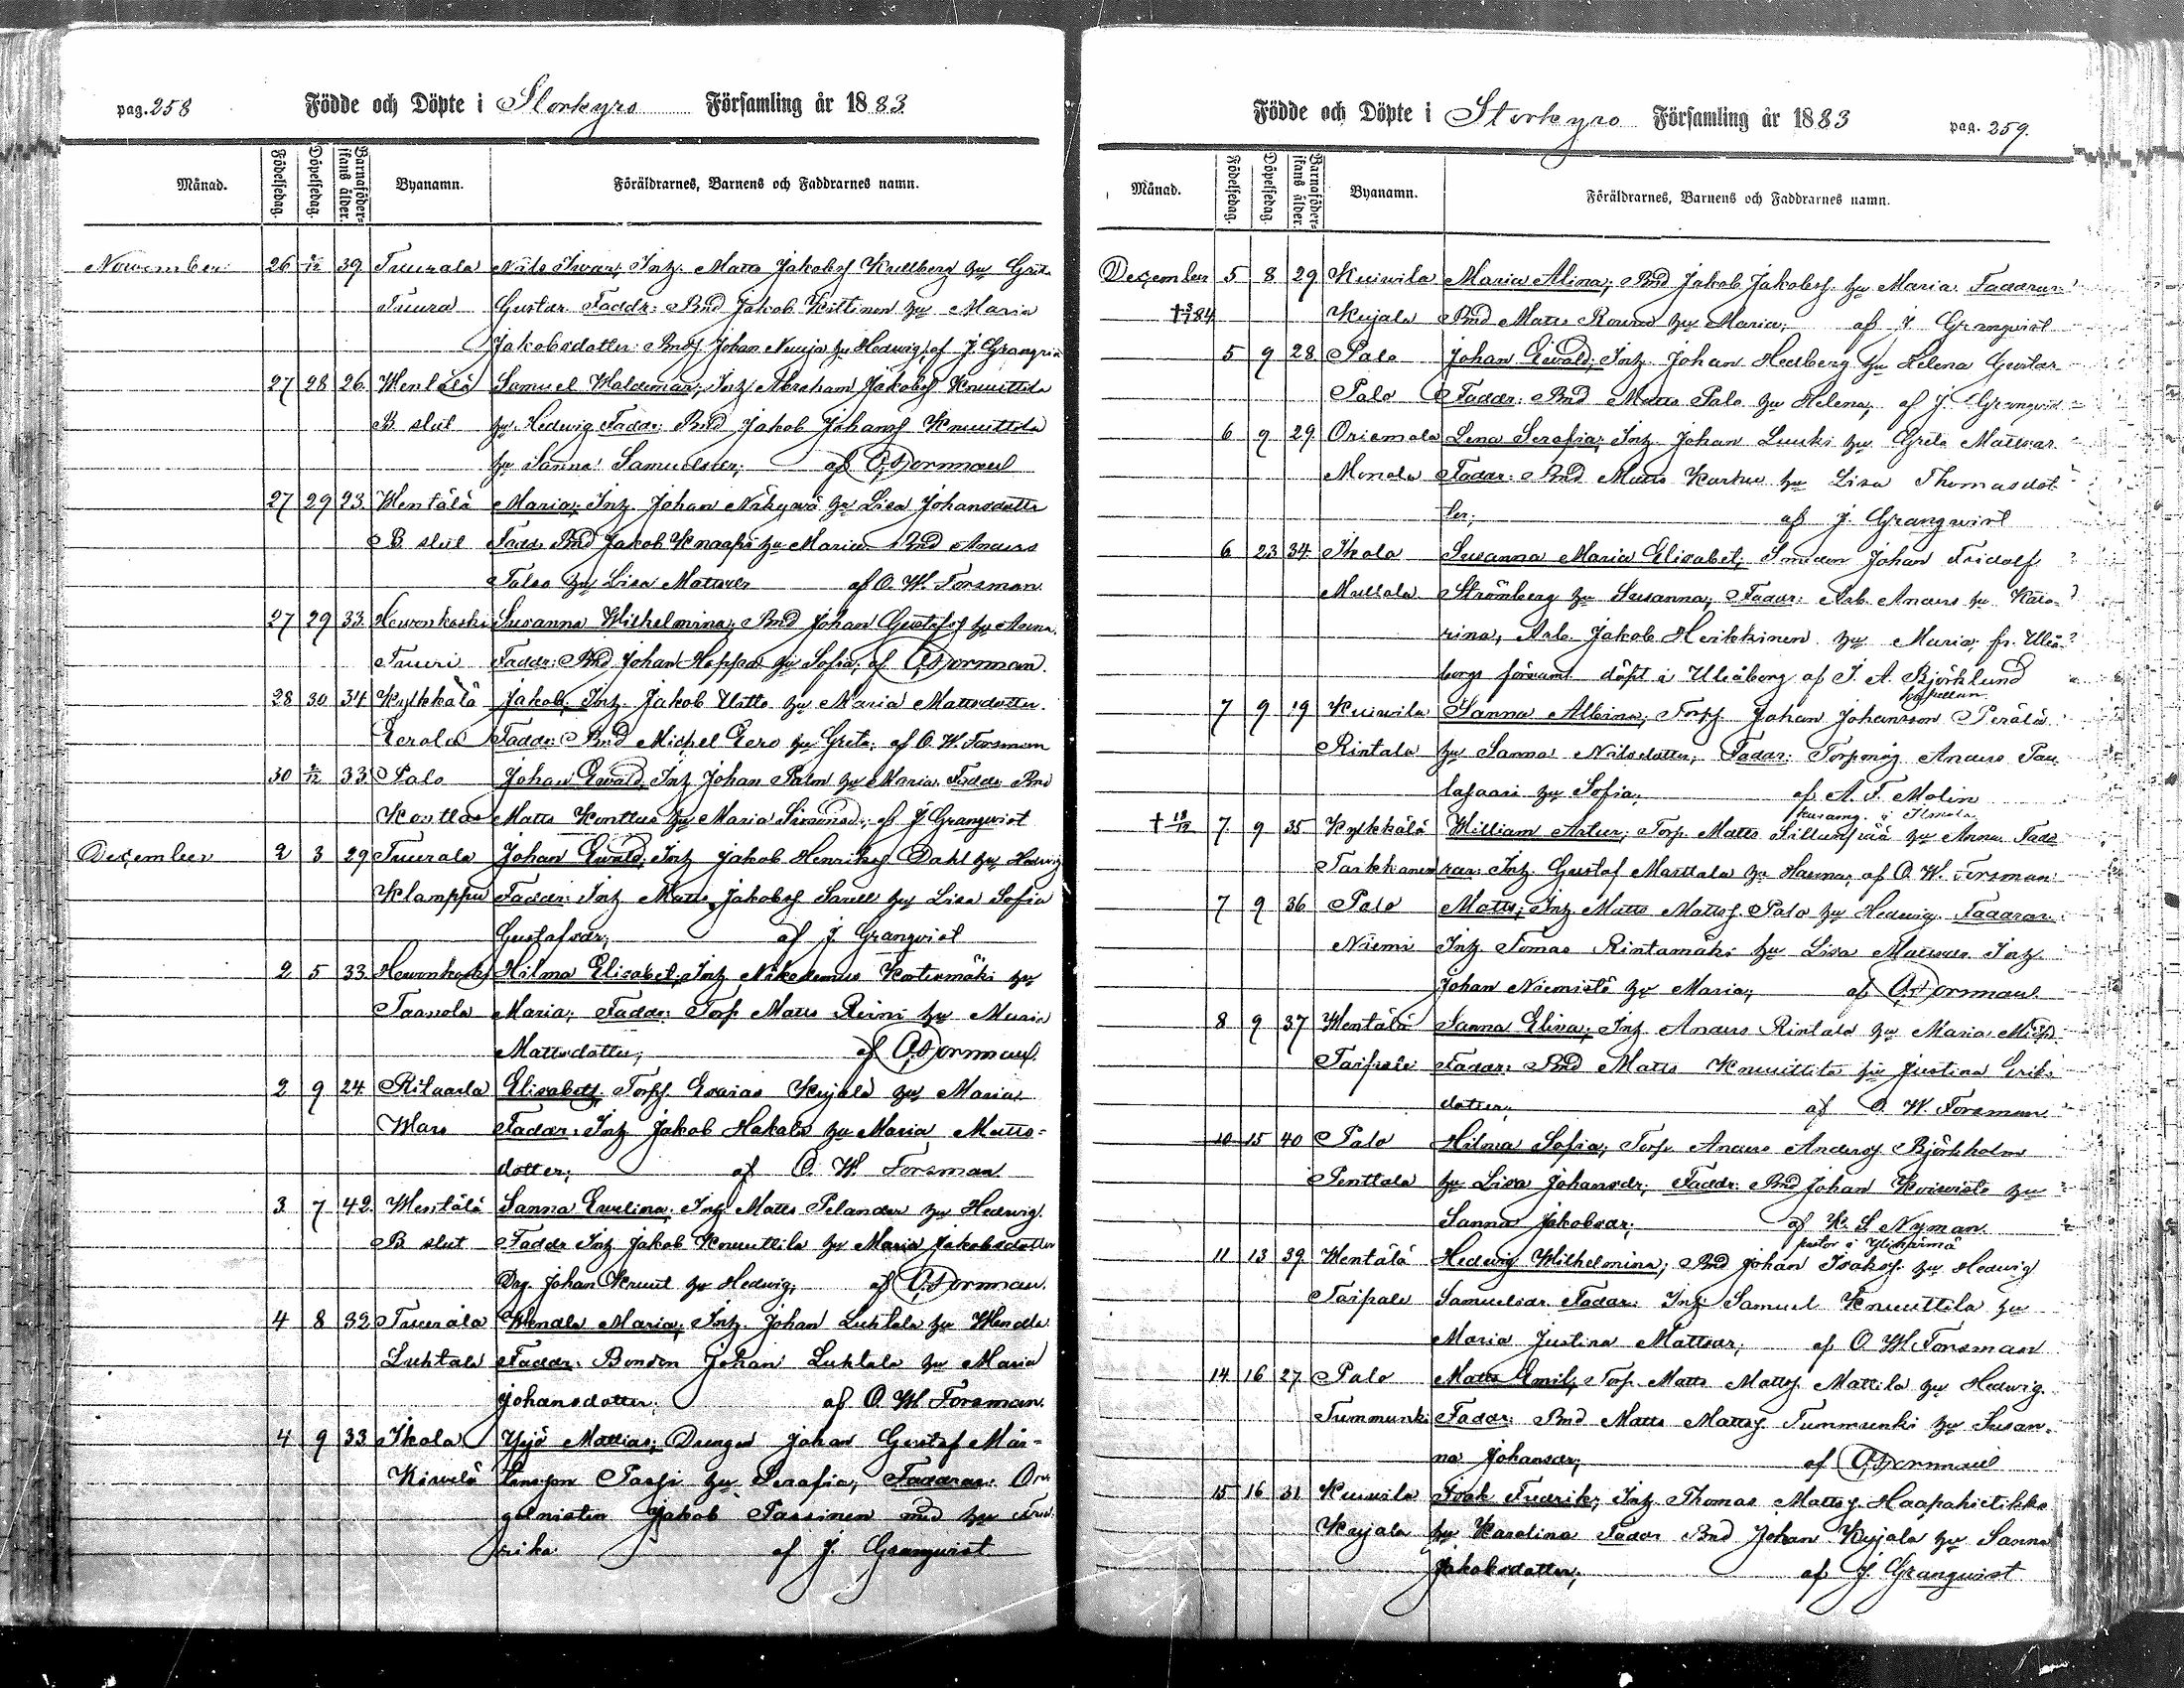 pag. 258 Födde och Döpte i Storkyro Församling år 1883
Månad. Födelsedag. Döpelsedag. Barnaföderskans ålder. Byanamn. Föräldrarnes, Barnens och Faddrarnes namn.
November 26 2/12 39 Tuurala Nils Iwar; Inh. Matts Jakobss Kullberg hu Greta
Tuura Gustar Faddr: Bnd Jakob Kittinen hu Maria
Jakobsdotter Bndss Johan Neuja hu Hedwig; af J. Granqvist
27 28 26 Wentälä Samuel Waldemar; Inh. Abraham Jakobss Knuuttila
B slut hu Hedwig Faddr: Bnd Jakob Johanss Knuuttila
hu Sanna Samuelsdr; af O.W. Forsman
27 29 23 Wentälä Maria; Inh. Johan Näkywä hu Lisa Johansdotter
B. slut Fadd. Bnd Jakob Knaapi hu Maria Bnd Anders
Talso hu Lisa Mattsdr af O. W. Forsman
27 29 33 Hewonkoski Susanna Wilhelmina; Bnd Johan Gustafss hu Anna.
Tuuri Faddr: Bnd Johan Hoppa hu Sofia; af O.W. Forsman.
28 30 34 Kylkkälä Jakob; Inh. Jakob Utto hu Maria Mattsdotter.
Eerola Faddr: Bnd Michel Eero hu Greta; af O. W. Forsman
30 2/12 33 Palo Johan Ewald; Inh Johan Palm hu Maria. Faddr Bnd
Konttas Matts Konttas hu Maria Simonsd.; af J. Granqvist
December 2 3 29 Tuurala Johan Ewald; Inh Jakob Henrikss Dahl hu Hedwig
Klamppu Faddr: Inh Matts Jakobss Sarell hu Lisa Sofia
Gustafsdr; af J. Granqvist
2 5 33 Hewonkoski Hilma Elisabet; Inh. Nikodemus Katismäki hu
Taawola Maria; Faddr: Torp Matts Reini hu Maria
Mattsdotter; af O.W. Forsman.
2 9 24 Ritaarla Elisabeth; Torpss. Esaias Kujala hu Maria
Wars Faddr: Inh Jakob Hakala hu Maria Matts-
dotter; af O. W. Forsman
3 7 42 Wentälä Sanna Ewelina; Inh Matts Pelander hu Hedwig.
B slut Faddr Inh Jakob Knuuttila hu Maria Jakobsdotter
Drg. Johan Knuut hu Hedwig; af O.W. Forsman.
4 8 32 Tuurala Wendla Maria; Inh. Johan Luhtala hu Wendla
Luhtala Faddr: Bonden Johan Luhtala hu Maria
Johansdotter; af O. W. Forsman.
4 9 33 Ikola Yrjö Mattias; Drengen Johan Gustaf Mår-
Kiwelä tensson Passi hu Serafia; Faddrar: Or-
gelnisten Jakob Passinen med hu Fred-
rika af J. Granqvist
Födde och Döpte i Storkyro Församling år 1883 pag. 259.
Månad. Födelsedag. Döpelsedag. Barnaföderskans ålder. Byanamn. Föräldrarnes, Barnens och Faddrarnes namn.
December 5 8 29 Kuiwila Maria Alina; Bnd Jakob Jakobss. hu Maria. Faddrar:
84 Kujala Bnd Matts Round hu Maria; af J. Granqvist
5 9 28 Palo Johan Ewald; Inh. Johan Hedberg hu Helena Gustar
Palo Faddr: Bnd Matts Palo hu Helena; af J. Granqvist
6 9 29 Orismala Lena Serafia; Inh. Johan Luuki hu Greta Mattsdr.
Monola Faddr: Bnd Matts Karhu hu Lisa Thomasdot-
ter; af J. Granqvist
6 23 34 Ikola Susanna Maria Elisabet; Smeden Johan Fridolf
Mullola Strömberg hu Susanna; Faddr: Arb. Anders hu Kata-
rina, Arb. Jakob Heikkinen hu Maria; fr. Uleå-
borgs församl. döpt i Uleåborg af J. A. Björklund
kapellan
7 9 19 Kuiwila Sanna Albina; Torpss Johan Johansson Perälä
Rintala hu Sanna Nilsdotter, Faddr: Torpmåg Anders Pau-
lasaari hu Sofia; af A. F. Molin
i Ilmola
† 18/12 7 9 35 Kylkkälä William Artur; Torp. Matts Sillanpää hu Anna. Fadd-
Taikkanen rar: Inh. Gustaf Marttala hu Hanna; af O. W. Forsman
7 9 36 Palo Matts; Inh Matts Mattss. Palo hu Hedwig. Faddrar:
Niemi Inh Tomas Rintamäki hu Lisa Mattsdr. Inh
Johan Niemistö hu Maria; af O.W. Forsman.
8 9 37 Wentälä Sanna Elina; Inh. Anders Rintala hu Maria Michsd.
Taipale Faddr: Bnd Matts Knuuttila hu Justina Eriks-
dotter; af O. W. Forsman
10 15 40 Palo Hilma Sofia; Torp. Anders Anderss Björkholm
Penttala hu Lisa Johansdr; Faddr: Bnd Johan Koiwisto hu
Sanna Jakobsdr; af K. S. Nyman
pastor i Ylihärmä
11 13 39 Wentälä Hedwig Wilhelmina; Bnd Johan Isakss. hu Hedwig
Taipale Samuelsdr Faddr: Inh: Samuel Knuuttila hu
Maria Justina Mattsdr; af O. W. Forsman
14 16 27 Palo Matts Emil; Torp. Matts Mattss. Mattila hu Hedwig.
Tummunki Faddr: Bnd Matts Mattss. Tummunki hu Susan-
na Johansdr; af O.W. Forsman
15 16 31 Kuiwila Isak Fredrik; Inh Thomas Mattss. Haapahietikko
Kujala hu Karolina Faddr Bnd Johan Kujala hu Sanna
Jakobsdotter; af J. Granqvist